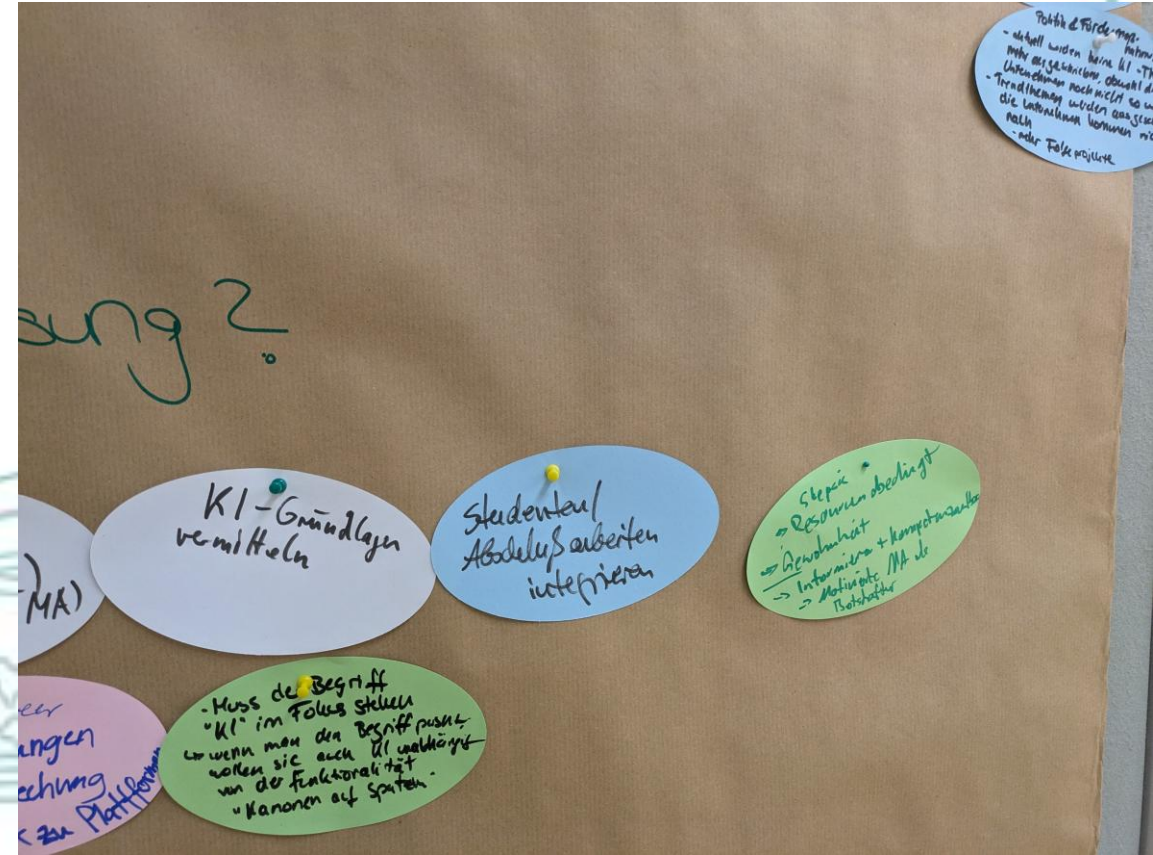 Politik & Förderung:
- aktuell werden keine KI-Th
mehr ausgeschrieben, obwohl di
Unternehmen noch nicht so w
- Trendthemen werden ausgesc
die Unternehmen kommen nic
nach
- mehr Folgeprojekte
sung?
KI-Grundlagen
vermitteln
Studenten/
Abschlußarbeiten
integrieren
Skepsis
-> Resourcenbedingt
=> Gewohnheit
-> Informieren + Kompetenzaufbau
-> Motivierte MA als
Botschafter
MA)
ungen
echung
zu Plattformen
- Muss der Begriff
"KI" im Fokus stehen
↳ wenn man den Begriff pusht,
wollen sie auch KI unabhängig
von der Funktionalität
"Kanonen auf Spatzen"